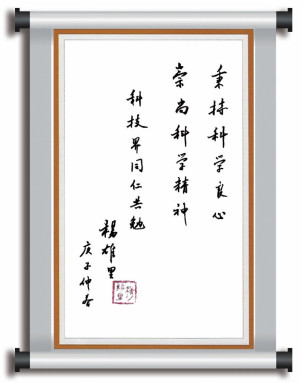 秉持科学良心
崇尚科学精神
科技界同仁共勉
杨雄里
庚子仲春